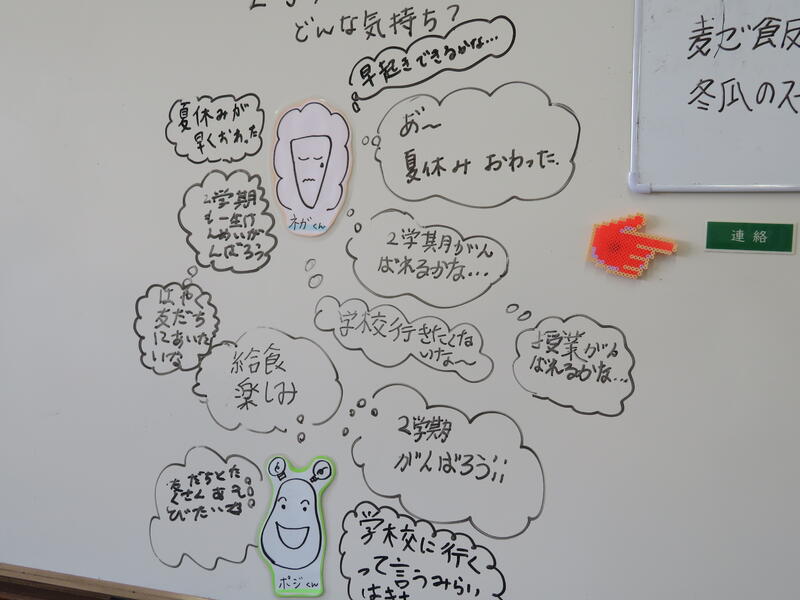 どんな気持ち?
早起きできるかな…
夏休みが
早くおわった
あ゛〜
夏休み おわった.
ネガくん
2学期
も一生け
んめいが
んばろう
2学期がん
ばれるかな…
はやく
友だち
にあいた
いな
学校行きたくな
いな〜
授業がん
ばれるかな…
給食
楽しみ
2学期
がんばろう;;
友だちとた
くさん
ポジくん
学校に行く
って言うみらい
麦ぜ食
冬瓜のス
連絡